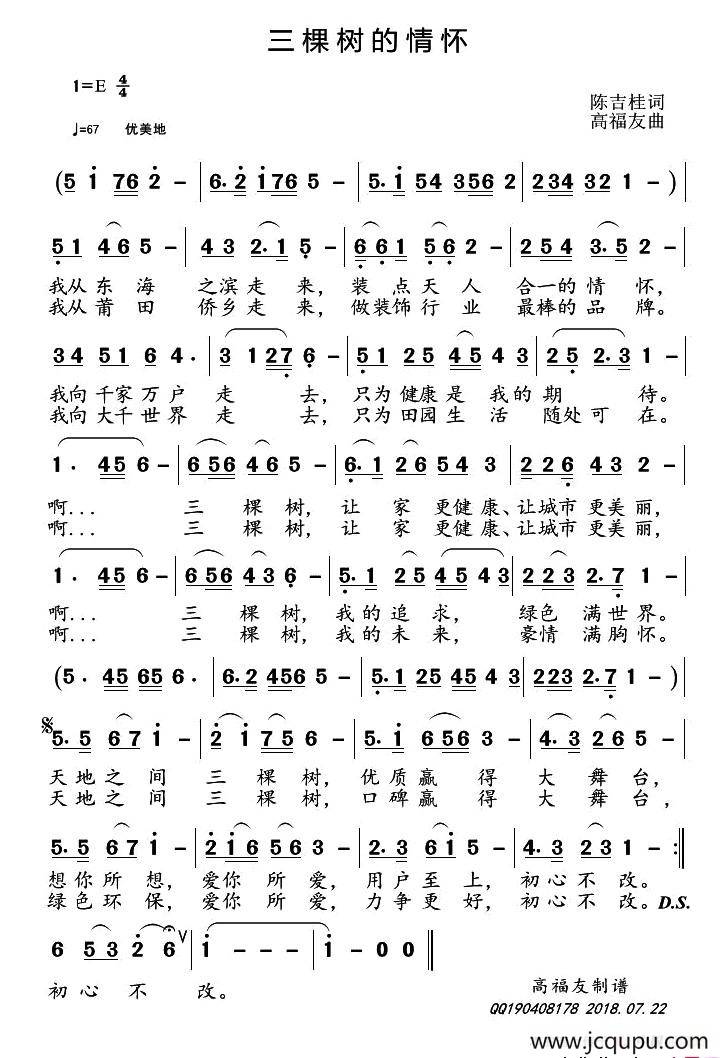 三棵树的情怀
1=E 4/4
陈吉桂词
♩=67 优美地
高福友曲
(5 1 76 2 - | 6. 2 176 5 - | 5. 1 54 356 2 | 234 32 1 - )
51 465 - | 43 2.1 5 - | 661 562 - | 254 3.52 -
我从东海 之滨走来，装点天人 合一的情怀，
我从莆田 侨乡走来，做装饰行业 最棒的品牌。
34 51 6 4. | 3 127 6 - | 51 25 45 43 | 25 2.31 -
我向千家万户走 去，只为健康是我的期 待。
我向大千世界走 去，只为田园生活随处可在。
1. 45 6 - | 656 465 - | 6.1 2654 3 | 226 432 -
啊... 三棵树，让家更健康、让城市更美丽，
啊... 三棵树，让家更健康、让城市更美丽，
1. 45 6 - | 656 436 - | 5.1 2545 43 | 223 2.71 -
啊... 三棵树，我的追求，绿色满世界。
啊... 三棵树，我的未来，豪情满胸怀。
(5. 45 65 6. | 6.2 456 5 - | 5.1 25 45 43 | 223 2.7 1 - )
5.5 67 1 - | 21 75 6 - | 5.6 1 65 2 - | 4.3 26 5 -
天地之间三棵树，优质赢得大舞台，
天地之间三棵树，口碑赢得大舞台，
5.5 67 1 - | 216 56 3 - | 2.3 61 5 - | 4.3 23 1 - :||
想你所想，爱你所爱，用户至上，初心不改。
绿色环保，爱你所爱，力争更好，初心不改。D.S.
6 53 2 6 V | 1 - - - | 1 - 0 0 ||
初心不改。
高福友制谱
QQ190408178 2018.07.22
www.jcqupu.com